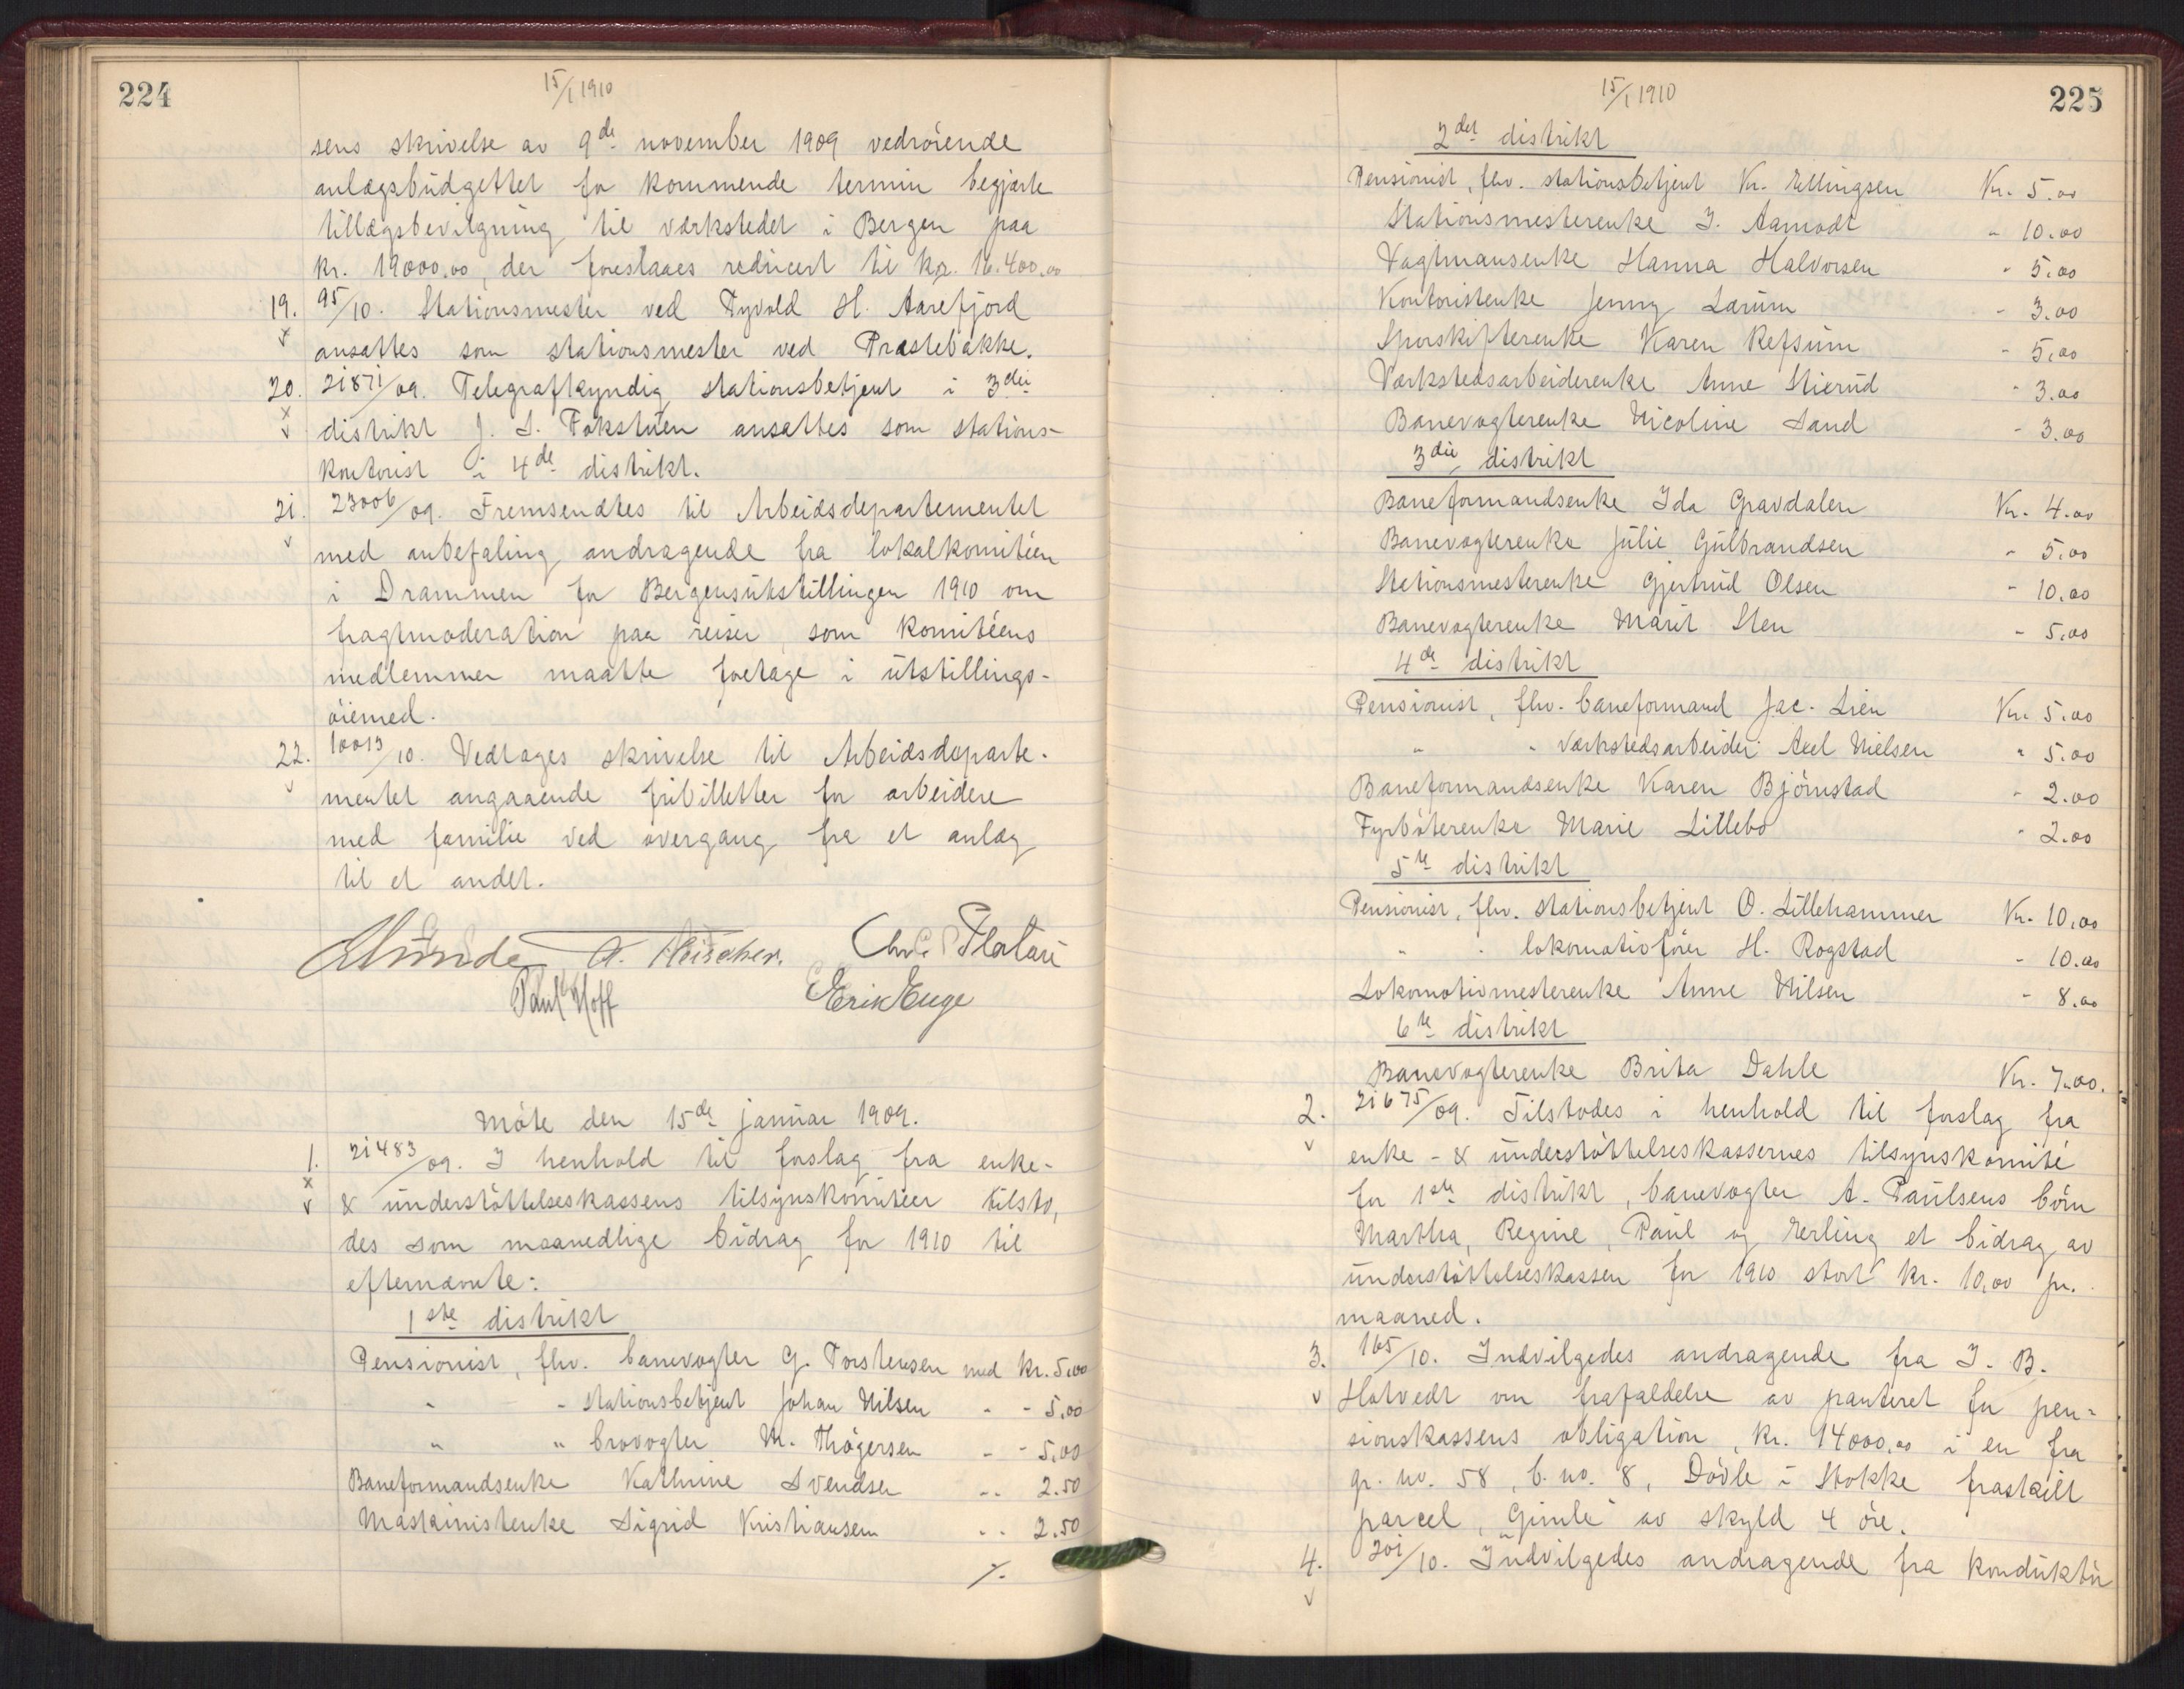 224
15/1 1910
sens skrivelse av 9de november 1909 vedrørende
anlægsbudgettet for kommende termin begjærte
tillægsbevilgning til verkstedet i Bergen paa
kr. 19000,00, der foreslaaes reducert til kr. 16.400,00
19. 95/10. Stationsmester ved Tyvold H. Aarefjord
ansættes som stationsmester ved Præstebakke.
20. 21871/09. Telegrafkyndig stationsbetjent i 3die
distrikt J. S. Fokstuen ansættes som stations-
kontorist i 4de distrikt.
21. 23006/09. Fremsendtes til Arbeidsdepartementet
med anbefaling andragende fra lokalkomitéen
i Drammen for Bergensutstillingen 1910 om
fragtmoderation paa reiser, som komitéens
medlemmer maatte foretage i utstillings-
øiemed.
22. 10013/10. Vedtages skrivelse til Arbeidsdeparte-
mentet angaaende fribilletter for arbeidere
med familie ved overgang fra et anlæg
til et andet.
Chr. Platou
Paul Hoff Erik Enge
Møte den 15de januar 1909.
1. 21483/09. I henhold til forslag fra enke-
& understøttelseskassens tilsynskomitéer tilsto,
des som maanedlige bidrag for 1910 til
efternævnte:
1ste distrikt
Pensionist, fhv. banevogter G. Torstensen med kr. 5,00
" " stationsbetjent Johan Nilsen " " 5,00
" " brovogter M. Thøgersen " " 5,00
Baneformandsenke Kathrine Svendsen " " 2.50
Maskinistenke Sigrid Kristiansen " " 2.50
·/.
15/1 1910
225
2det distrikt
Pensionist, fhv. stationsbetjent Kr. Ellingsen Kr. 5.00
Stationsmesterenke J. Aamodt " 10.00
Vagtmansenke Hanna Halvorsen " 5.00
Kontoristenke Jenny Larum " 3.00
Sporskifterenke Karen Refsum " 5,00
Verkstedsarbeiderenke Anne Stierud " 3.00
Banevogterenke Nicoline Sand " 3.00
3die distrikt
Baneformandsenke Ida Gravdalen Kr. 4.00
Banevogterenke Julie Gulbrandsen " 5.00
Stationsmesterenke Gjertrud Olsen " 10.00
Banevogterenke Marit Sten " 5.00
4de distrikt
Pensionist, fhv. baneformand Jac. Lien Kr. 5.00
" " verkstedsarbeider Axel Nielsen " 5.00
Baneformandsenke Karen Bjørnstad " 2.00
Fyrbøterenke Marie Lillebo " 2.00
5te distrikt
Pensionist, fhv. stationsbetjent O. Lillehammer Kr. 10,00
" " lokomotivfører H. Rogstad " 10.00
Lokomotivmesterenke Anne Nilsen " 8.00
6te distrikt
Banevogterenke Brita Dahle Kr. 7.00.
2. 21675/09. Tilstodes i henhold til forslag fra
enke- & understøttelseskassernes tilsynskomité
for 1ste distrikt, banevogter A. Paulsens børn
Martha, Regine, Paul og Erling et bidrag av
understøttelseskassen for 1910 stort kr. 10,00 pr.
maaned.
3. 165/10. Indvilgedes andragende fra J. B.
Hotvedt om frafaldelse av panteret for pen-
sionskassens obligation, kr. 14000,00 i en fra
gr. no. 58, b. no. 8, Døvle i Stokke fraskilt
parcel, "Gimle" av skyld 4 øre.
4. 201/10. Indvilgedes andragende fra konduktør